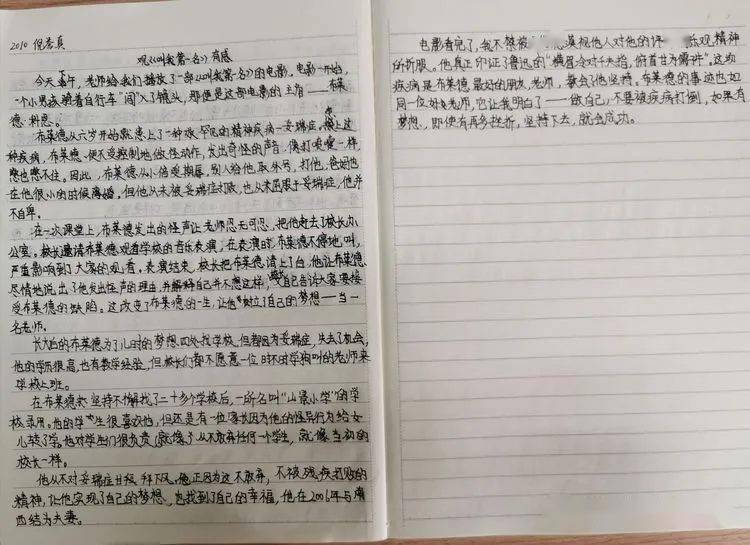 2010 倪荟真
观《叫我第一名》有感
今天下午,老师给我们播放了一部《叫我第一名》的电影。电影一开始,
一个小男孩骑着自行车"闯"入了镜头,那便是这部电影的主角——布莱
德·科恩。
布莱德从六岁开始就患上了一种极罕见的精神疾病—妥瑞症。患上这
种疾病,布莱德便不受控制地做怪动作,发出奇怪的声音,像打喷嚏一样,
憋也憋不住。因此,布莱德从小倍受欺辱,别人给他取外号,打他,爸妈也
在他很小的时候离婚。但他从未被妥瑞症打败,也从未屈服于妥瑞症,他并
不自卑。
在一次课堂上,布莱德发出的怪声让老师忍无可忍,把他赶去了校长办
公室。校长邀请布莱德观看学校的音乐表演,在表演时,布莱德不停地叫,
严重影响到了大家的观看。表演结束,校长把布莱德请上了台,他让布莱德
尽情地说出了他发出怪声的理由,并解释自己并不想这样,自己告诉大家要接
受布莱德的缺陷。这改变了布莱德的一生,让他树立了自己的梦想——当一
名老师。
长大后的布莱德为了儿时的梦想四处找学校,但都因为妥瑞症,失去了机会,
他的学历很高,也有教学经验,但校长们都不愿意一位时不时学狗叫的老师来
学校上班。
在布莱德坚持不懈找了二十多个学校后,一所名叫"山景小学"的学
校录用。他的学生很喜欢他,但还是有一位家长因为他的怪异行为给女
儿转了学。他对学生们很负责,从不放弃任何一个学生,就像当初的
校长一样。
他从不对妥瑞症甘拜下风。他正因为这不放弃,不被残疾打败的
精神,让他实现了自己的梦想,也找到了自己的幸福,他在2006年与南
西结为夫妻。
电影看完了,我不禁被 漠视他人对他的评 乐观精神
所折服。他真正印证了鲁迅的"横眉冷对千夫指,俯首甘为孺子牛"。这场
疾病是布莱德最好的朋友,老师,教会了他坚持。布莱德的事迹也如
同一位好老师,它让我明白了——做自己,不要被疾病打倒,如果有
梦想,即使有再多挫折,坚持下去,就会成功。